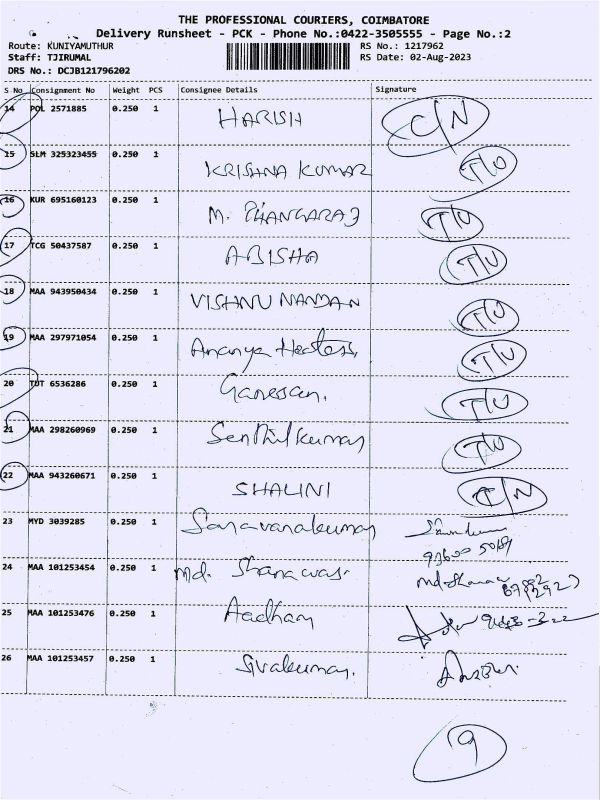 THE PROFESSIONAL COURIERS, COIMBATORE
Delivery Runsheet - PCK - Phone No.:0422-3505555 - Page No.:2
Route: KUNIYAMUTHUR RS No.: 1217962
Staff: TJIRUMAL RS Date: 02-Aug-2023
DRS No.: DCJB121796202
S No Consignment No Weight PCS Consignee Details Signature
14 POL 2571885 0.250 1 HARISH C/N
15 SLM 325323455 0.250 1 KRISHNA KUMAR T/U
16 KUR 695160123 0.250 1 M. THANGARAJ T/U
17 TCG 50437587 0.250 1 ABISHA T/U
18 MAA 943950434 0.250 1 VISHNU NANDAN T/U
19 MAA 297971054 0.250 1 Ananya T/U
20 TUT 6536286 0.250 1 Ganesan. T/U
21 MAA 298260969 0.250 1 Senthilkumar T/U
22 MAA 943260671 0.250 1 SHALINI C/N
23 MYD 3039285 0.250 1 Saravanakumar
24 MAA 101253454 0.250 1 Md. Shanawas.
25 MAA 101253476 0.250 1 Aadhan
26 MAA 101253457 0.250 1 Sivakumar.
9